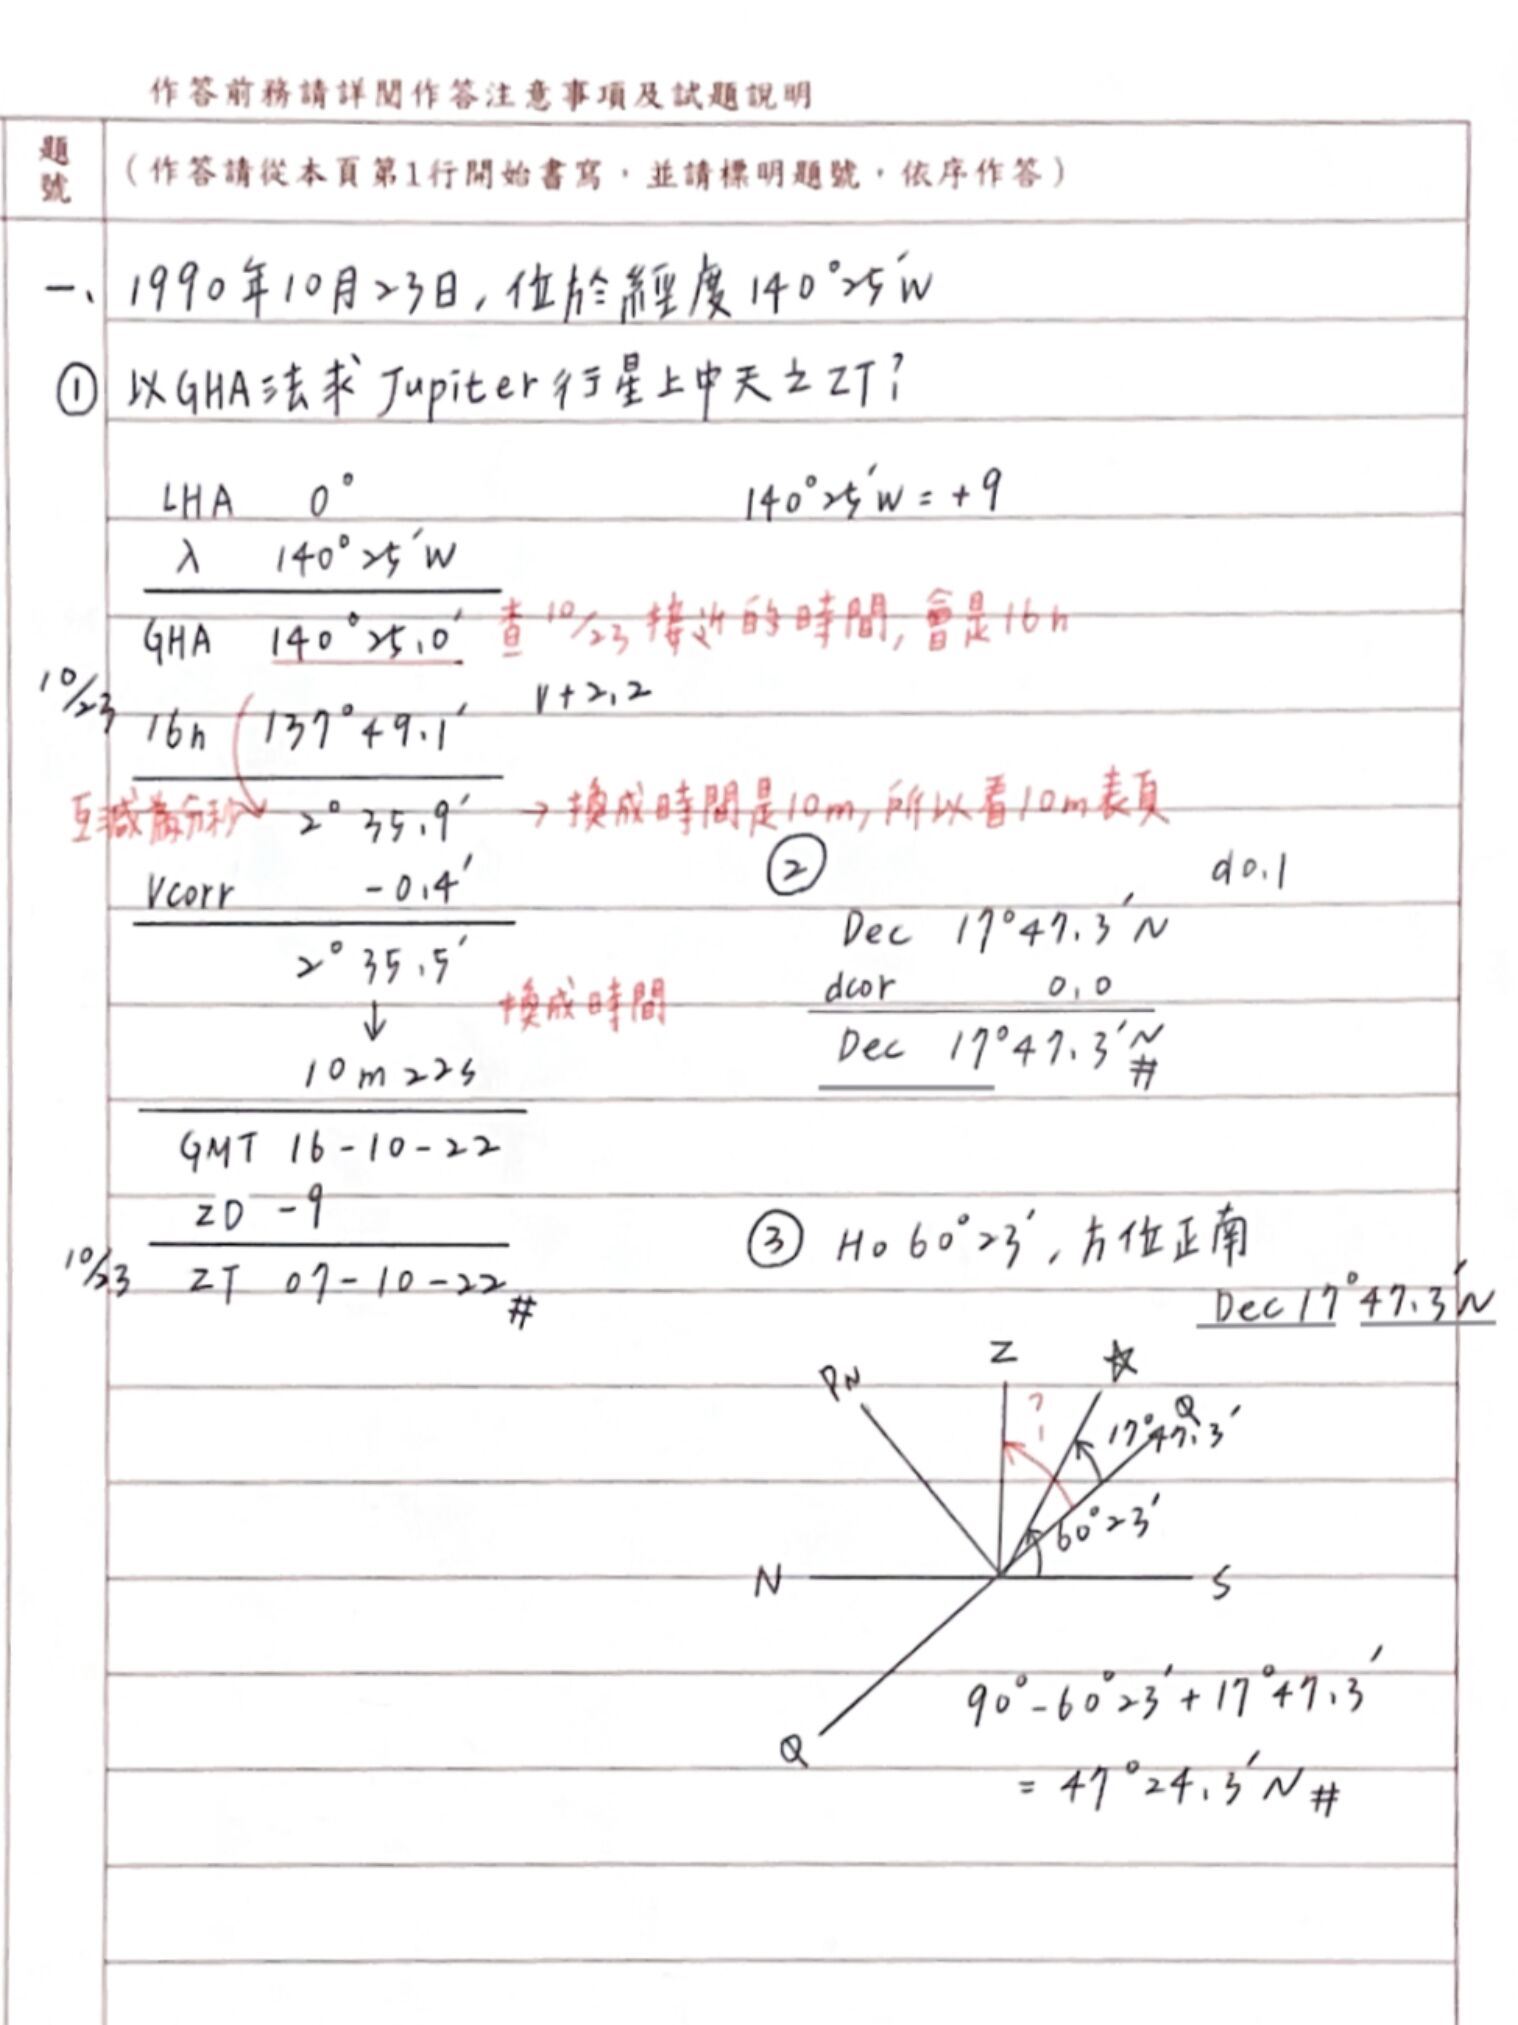 作答前務請詳閱作答注意事項及試題說明
題號
(作答請從本頁第1行開始書寫,並請標明題號,依序作答)
一、 1990年10月23日, 位於經度140°25′W
① 以GHA法求Jupiter行星上中天之ZT?
LHA 0°
140°25′W = +9
λ 140°25′W
GHA 140°25.0′ 查10/23接近的時間, 會是16h
10/23 16h 137°49.1′ V+2.2
互減為分秒 2°35.9′ → 換成時間是10m, 所以看10m表頁
Vcorr -0.4′
2°35.5′
↓ 換成時間
10m22s
GMT 16-10-22
ZD -9
10/23 ZT 07-10-22 #
② d0.1
Dec 17°47.3′N
dcor 0.0
Dec 17°47.3′N #
③ Ho 60°23′, 方位正南
Dec 17°47.3′N
PN Z ☆ Q
? 17°47.3′
60°23′
N S
Q
90°-60°23′+17°47.3′
= 47°24.3′N #